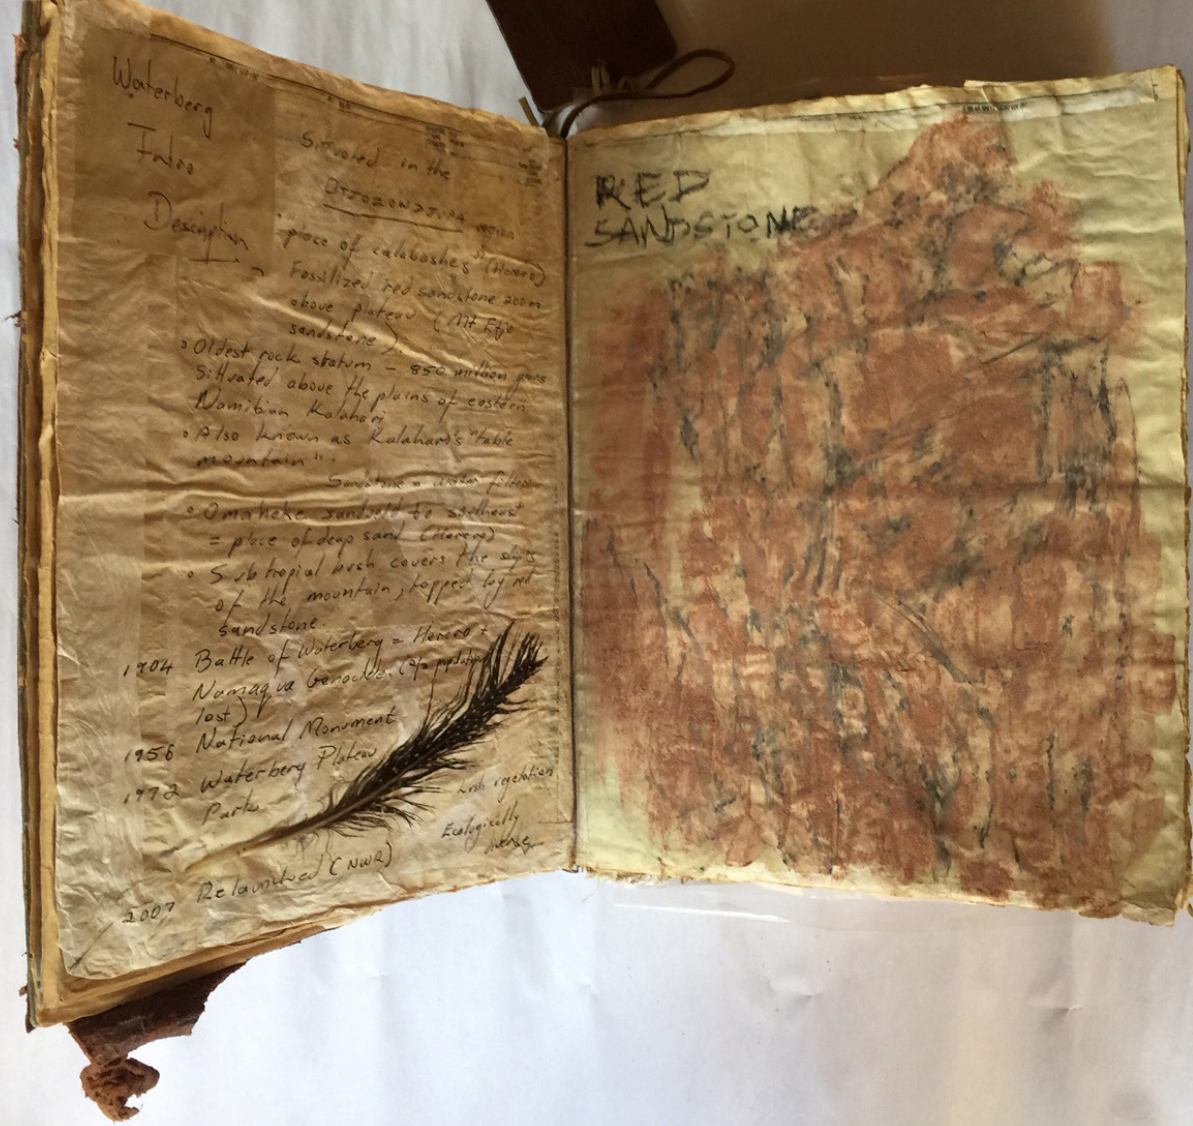 Waterberg
Intro
Description
Situated in the
OTJOZONDJUPA region
"place of calabashes" (Herero)
Fossilized red sandstone 200m
above plateau (Mt Etjo
sandstone).
• Oldest rock stratum - 850 million years
Sittuated above the plains of eastern
Namibian Kalahari
• Also known as Kalahari's "table
mountain".
Sandstone = water filter
• Omaheke sandveld to
= place of deep sand (Herero)
• Subtropial bush covers the slops
of the mountain, topped by red
sandstone.
1904 Battle of Waterberg = Herero +
Namaqua Genocide.
lost)
1956 National Monument
1972 Waterberg Plateau
Park
Lush vegetation
Ecologically
diverse
2007 Relaunched (NWR)
RED
SANDSTONE